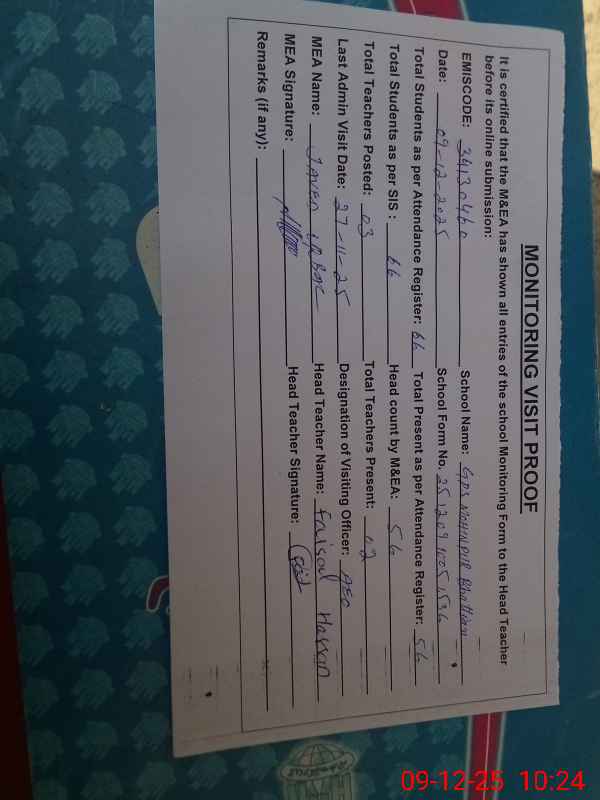 MONITORING VISIT PROOF
It is certified that the M&EA has shown all entries of the school Monitoring Form to the Head Teacher
before its online submission:
EMISCODE: 34130460 School Name: GPS MOHINPUR Bhattian
Date: 09-12-2025 School Form No. 251209100515 36
Total Students as per Attendance Register: 66 Total Present as per Attendance Register: 56
Total Students as per SIS : 66 Head count by M&EA: 56
Total Teachers Posted: 03 Total Teachers Present: 02
Last Admin Visit Date: 27-11-25 Designation of Visiting Officer: AEO
MEA Name: JAVED IQBAL Head Teacher Name: Faisal Hassan
MEA Signature: Head Teacher Signature:
Remarks (if any):
09-12-25 10:24